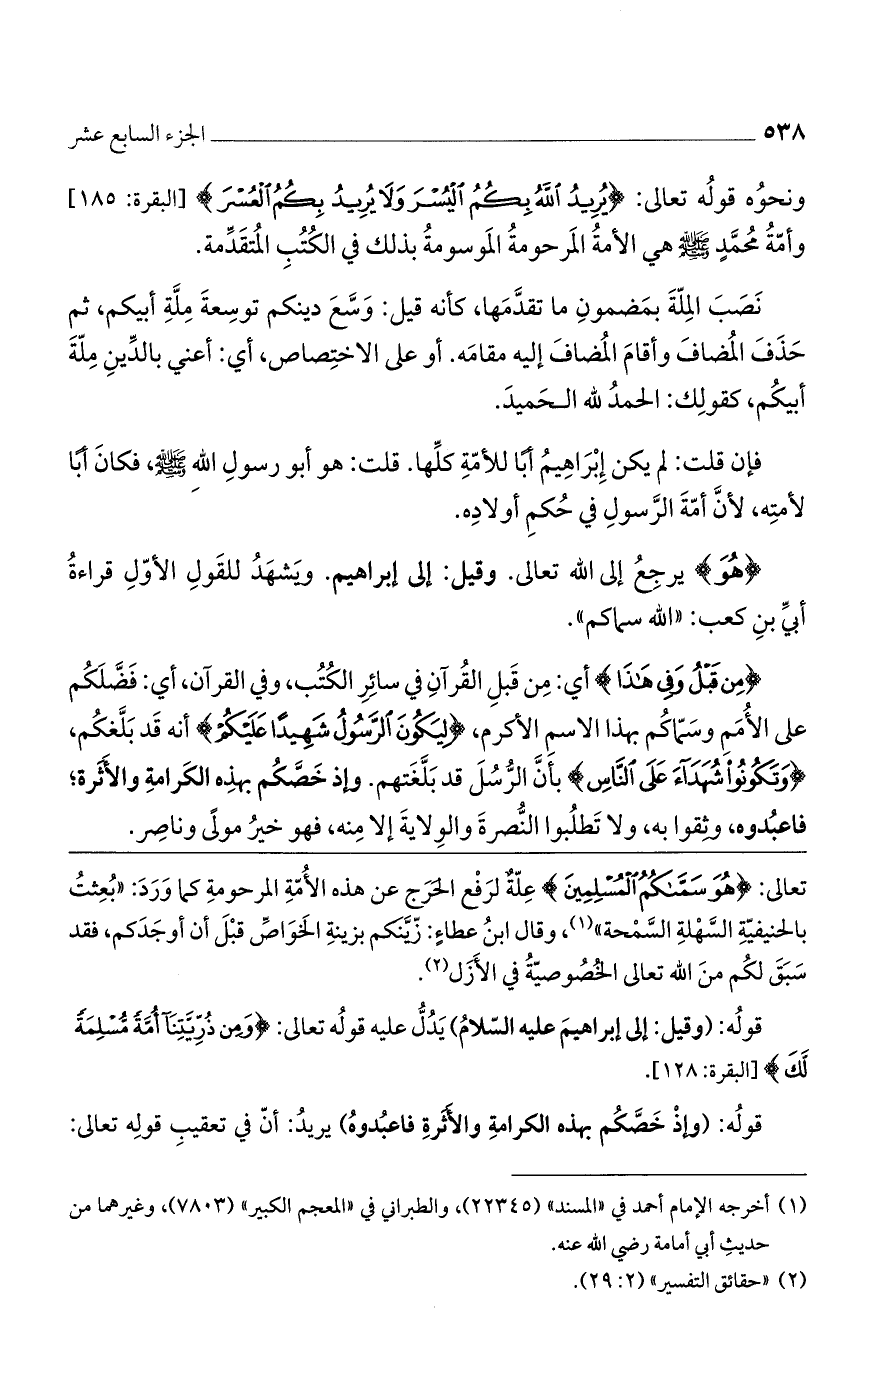 ٥٣٨ الجزء السابع عشر
ونحوُه قولُه تعالى: ﴿يُرِيدُ ٱللَّهُ بِكُمُ ٱلْيُسْرَ وَلَا يُرِيدُ بِكُمُ ٱلْعُسْرَ﴾ [البقرة: ١٨٥]
وأمّةُ مُحمَّدٍ ﷺ هي الأمةُ المَرحومةُ المَوسومةُ بذلك في الكُتُبِ المُتقدِّمة.
نَصَبَ المِلّةَ بمَضمونِ ما تقدَّمَها، كأنه قيل: وَسَّعَ دينكم توسِعةَ مِلَّةِ أبيكم، ثم
حَذَفَ المُضافَ وأقامَ المُضافَ إليه مقامَه. أو على الاختِصاص، أي: أعني بالدِّينِ مِلّةَ
أبيكُم، كقولِك: الحمدُ لله الـحَميدَ.
فإن قلت: لم يكن إِبْرَاهِيمُ أبًا للأمّةِ كلِّها. قلت: هو أبو رسولِ اللهِ ﷺ، فكانَ أبًا
لأمتِه، لأنَّ أمّةَ الرَّسولِ في حُكمِ أولادِه.
﴿هُوَ﴾ يرجِعُ إلى الله تعالى. وقيل: إلى إبراهيم. ويَشهَدُ للقَولِ الأوّلِ قراءةُ
أبيِّ بنِ كعب: «الله سماكم».
﴿مِن قَبْلُ وَفِي هَٰذَا﴾ أي: مِن قَبلِ القُرآنِ في سائرِ الكُتُب، وفي القرآن، أي: فَضَّلَكُم
على الأُمَمِ وسَمّاكُم بهذا الاسمِ الأكرم، ﴿لِيَكُونَ ٱلرَّسُولُ شَهِيدًا عَلَيْكُمْ﴾ أنه قَد بَلَّغكُم،
﴿وَتَكُونُوا۟ شُهَدَآءَ عَلَى ٱلنَّاسِ﴾ بأنَّ الرُّسُلَ قد بَلَّغَتهم. وإذ خَصَّكُم بهذِه الكَرامةِ والأَثَرة؛
فاعبُدوه، وثِقوا به، ولا تَطلُبوا النُّصرةَ والوِلايةَ إلا مِنه، فهو خيرُ مولًى وناصِر.
تعالى: ﴿هُوَ سَمَّىٰكُمُ ٱلْمُسْلِمِينَ﴾ عِلّةٌ لرَفْعِ الحَرَج عن هذه الأُمّةِ المرحومةِ كما وَرَدَ: «بُعِثتُ
بالحنيفيّةِ السَّهْلةِ السَّمْحة»(١)، وقال ابنُ عطاءٍ: زيَّنَكم بزينةِ الخَواصِّ قبْلَ أن أوجَدَكم، فقد
سَبَقَ لكُم منَ الله تعالى الخُصُوصيّةُ في الأزَل(٢).
قولُه: (وقيل: إلى إبراهيمَ عليه السّلامُ) يَدُلُّ عليه قولُه تعالى: ﴿وَمِن ذُرِّيَّتِنَآ أُمَّةً مُّسْلِمَةً
لَّكَ﴾ [البقرة: ١٢٨].
قولُه: (وإذْ خَصَّكُم بهذه الكرامةِ والأَثَرةِ فاعبُدوهُ) يريدُ: أنّ في تعقيبِ قولِه تعالى:
(١) أخرجه الإمام أحمد في «المسند» (٢٢٣٤٥)، والطبراني في «المعجم الكبير» (٧٨٠٣)، وغيرهما من
حديثِ أبي أمامة رضي الله عنه.
(٢) «حقائق التفسير» (٢: ٢٩).